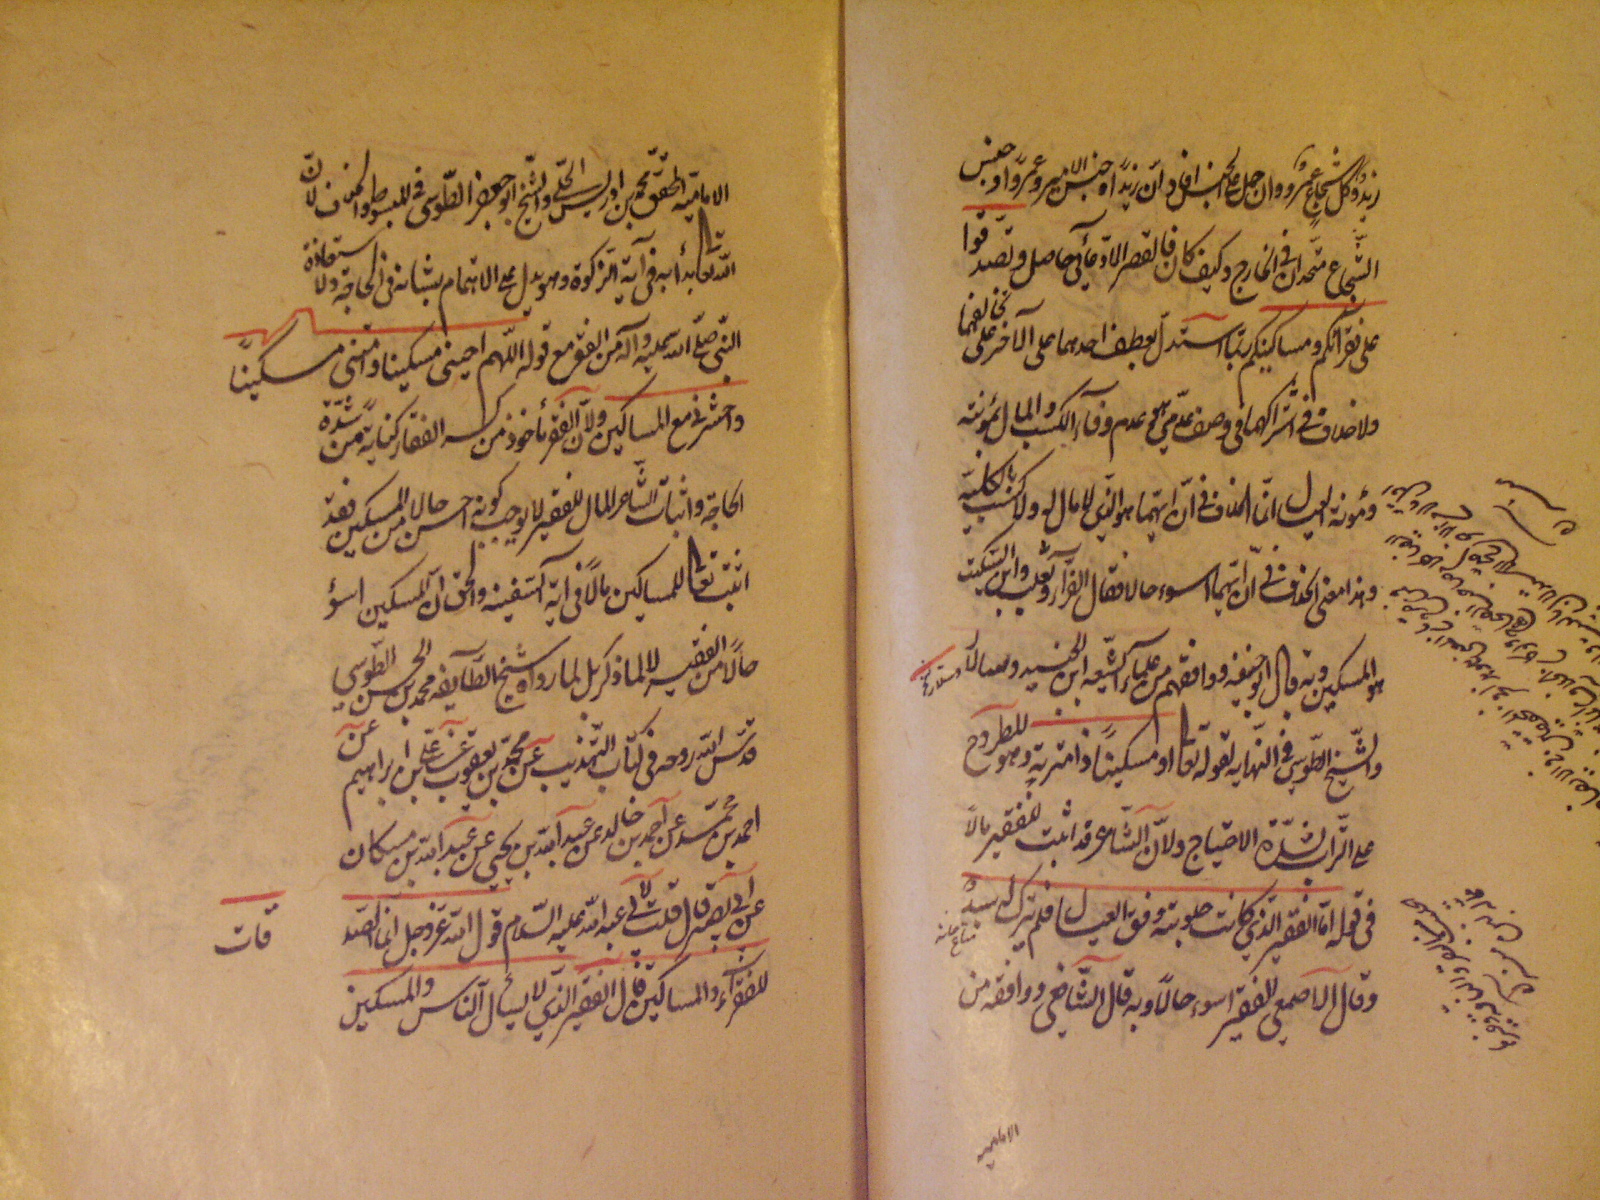 زيد وكل شجاع عمرو وان حمل على الجنس افاد ان زيدا وجنس الامير وعمروا وجنس
الشجاع متحدان في الخارج وكيف كان فالقصر الادعائي حاصل وتصدقوا
على فقرائكم ومساكينكم ربما استدل بعطف احدهما على الآخر على تخالفهما
ولا خلاف في اشتراكهما في وصف عدمي هو عدم وفاء الكسب والمال بمؤنته
ومؤنة العيال انما الخلاف في ان ايهما هو الذي لا مال له ولا كسب بالكلية
وهذا معنى الخلاف في ان ايهما اسوء حالا فقال الفراء وثعلب وابن السكيت
هو المسكين وبه قال ابو حنيفة ووافقهم من علماء الشيعة ابن الجنيد وسلار
والشيخ الطوسي في النهاية لقوله تعالى او مسكينا ذا متربة وهو المطروح
على التراب لشدة الاحتياج ولان الشاعر قد اثبت للفقير مالا
في قوله اما الفقير الذي كانت حلوبته وفق العيال فلم يترك له سبد
وقال الاصمعي الفقير اسوء حالا وبه قال الشافعي ووافقه من
الامامية
الامامية المحقق محمد بن ادريس الحلي والشيخ ابو جعفر الطوسي في المبسوط والخلاف لان
الله تعالى بدأ به في آية الزكوة وهو يدل على الاهتمام بشانه في الحاجة ولاستعاذة
النبي صلى الله عليه وآله من الفقر مع قوله اللهم احيني مسكينا وامتني مسكينا
واحشرني مع المساكين ولان الفقر مأخوذ من كسر الفقار كناية من شدة
الحاجة واثبات الشاعر المال للفقير لا يوجب كونه احسن حالا من المسكين فقد
اثبت تعالى للمساكين مالا في آية السفينة والحق ان المسكين اسؤ
حالا من الفقير لا لما ذكر بل لما رواه شيخ الطايفه محمد بن الحسن الطوسي
قدس الله روحه في كتاب التهذيب عن محمد بن يعقوب عن علي بن ابراهيم عن
احمد بن محمد عن احمد بن خالد عن عبد الله بن يحيى عن عبد الله بن مسكان
عن ابي بصير قال قلت لابي عبد الله عليه السلام قول الله عز وجل انما الصد
قات
للفقراء والمساكين قال الفقير الذي لا يسأل الناس والمسكين